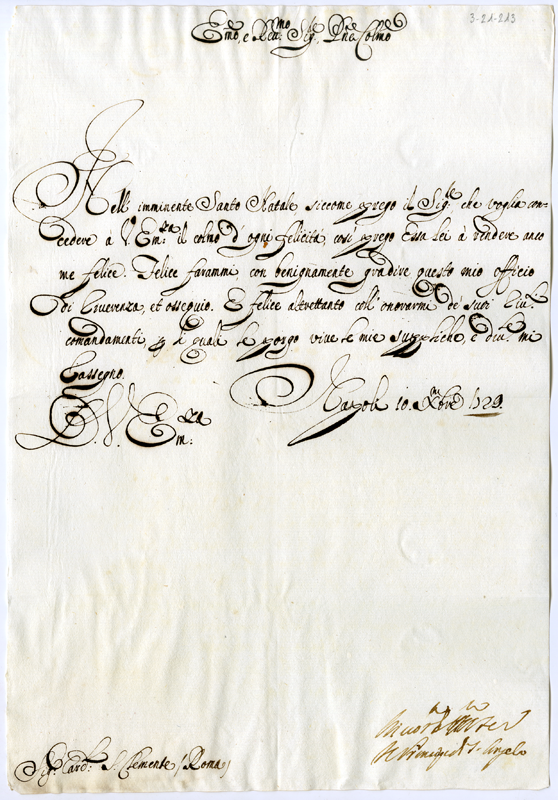 3-21-213
Em̃o, e Reu.mo Sig.re Pñe Colmo
Nell' imminente Santo Natale siccome prego il Sig.re che voglia con=
cedere à V. Em.za il colmo d'ogni felicità, così prego Essa Lei à rendere anco
me felice. Felice farammi con benignamente gradire questo mio officio
di riuerenza, et ossequio. E felice altrettanto coll'onorarmi de suoi riu.ti
comandamenti, p li quali le porgo vive le mie suppliche, e diu.te mi
rassegno.
D. V. Em.za
Napoli 10. Xbre 1729.
S. Angelo
Sig.r Card.le S. Clemente (Roma)